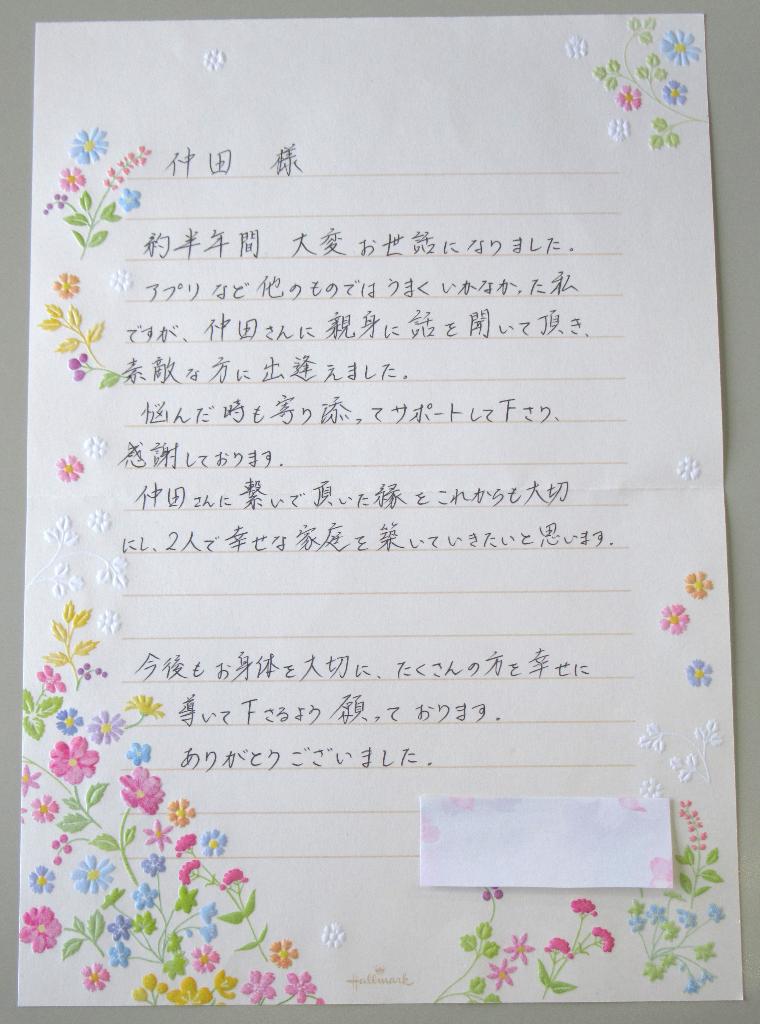 仲田 様
約半年間 大変お世話になりました。
アプリなど他のものではうまくいかなかった私
ですが、仲田さんに親身に話を聞いて頂き、
素敵な方に出逢えました。
悩んだ時も寄り添ってサポートして下さり、
感謝しております。
仲田さんに繋いで頂いた縁をこれからも大切
にし、2人で幸せな家庭を築いていきたいと思います。
今後もお身体を大切に、たくさんの方を幸せに
導いて下さるよう願っております。
ありがとうございました。
Hallmark